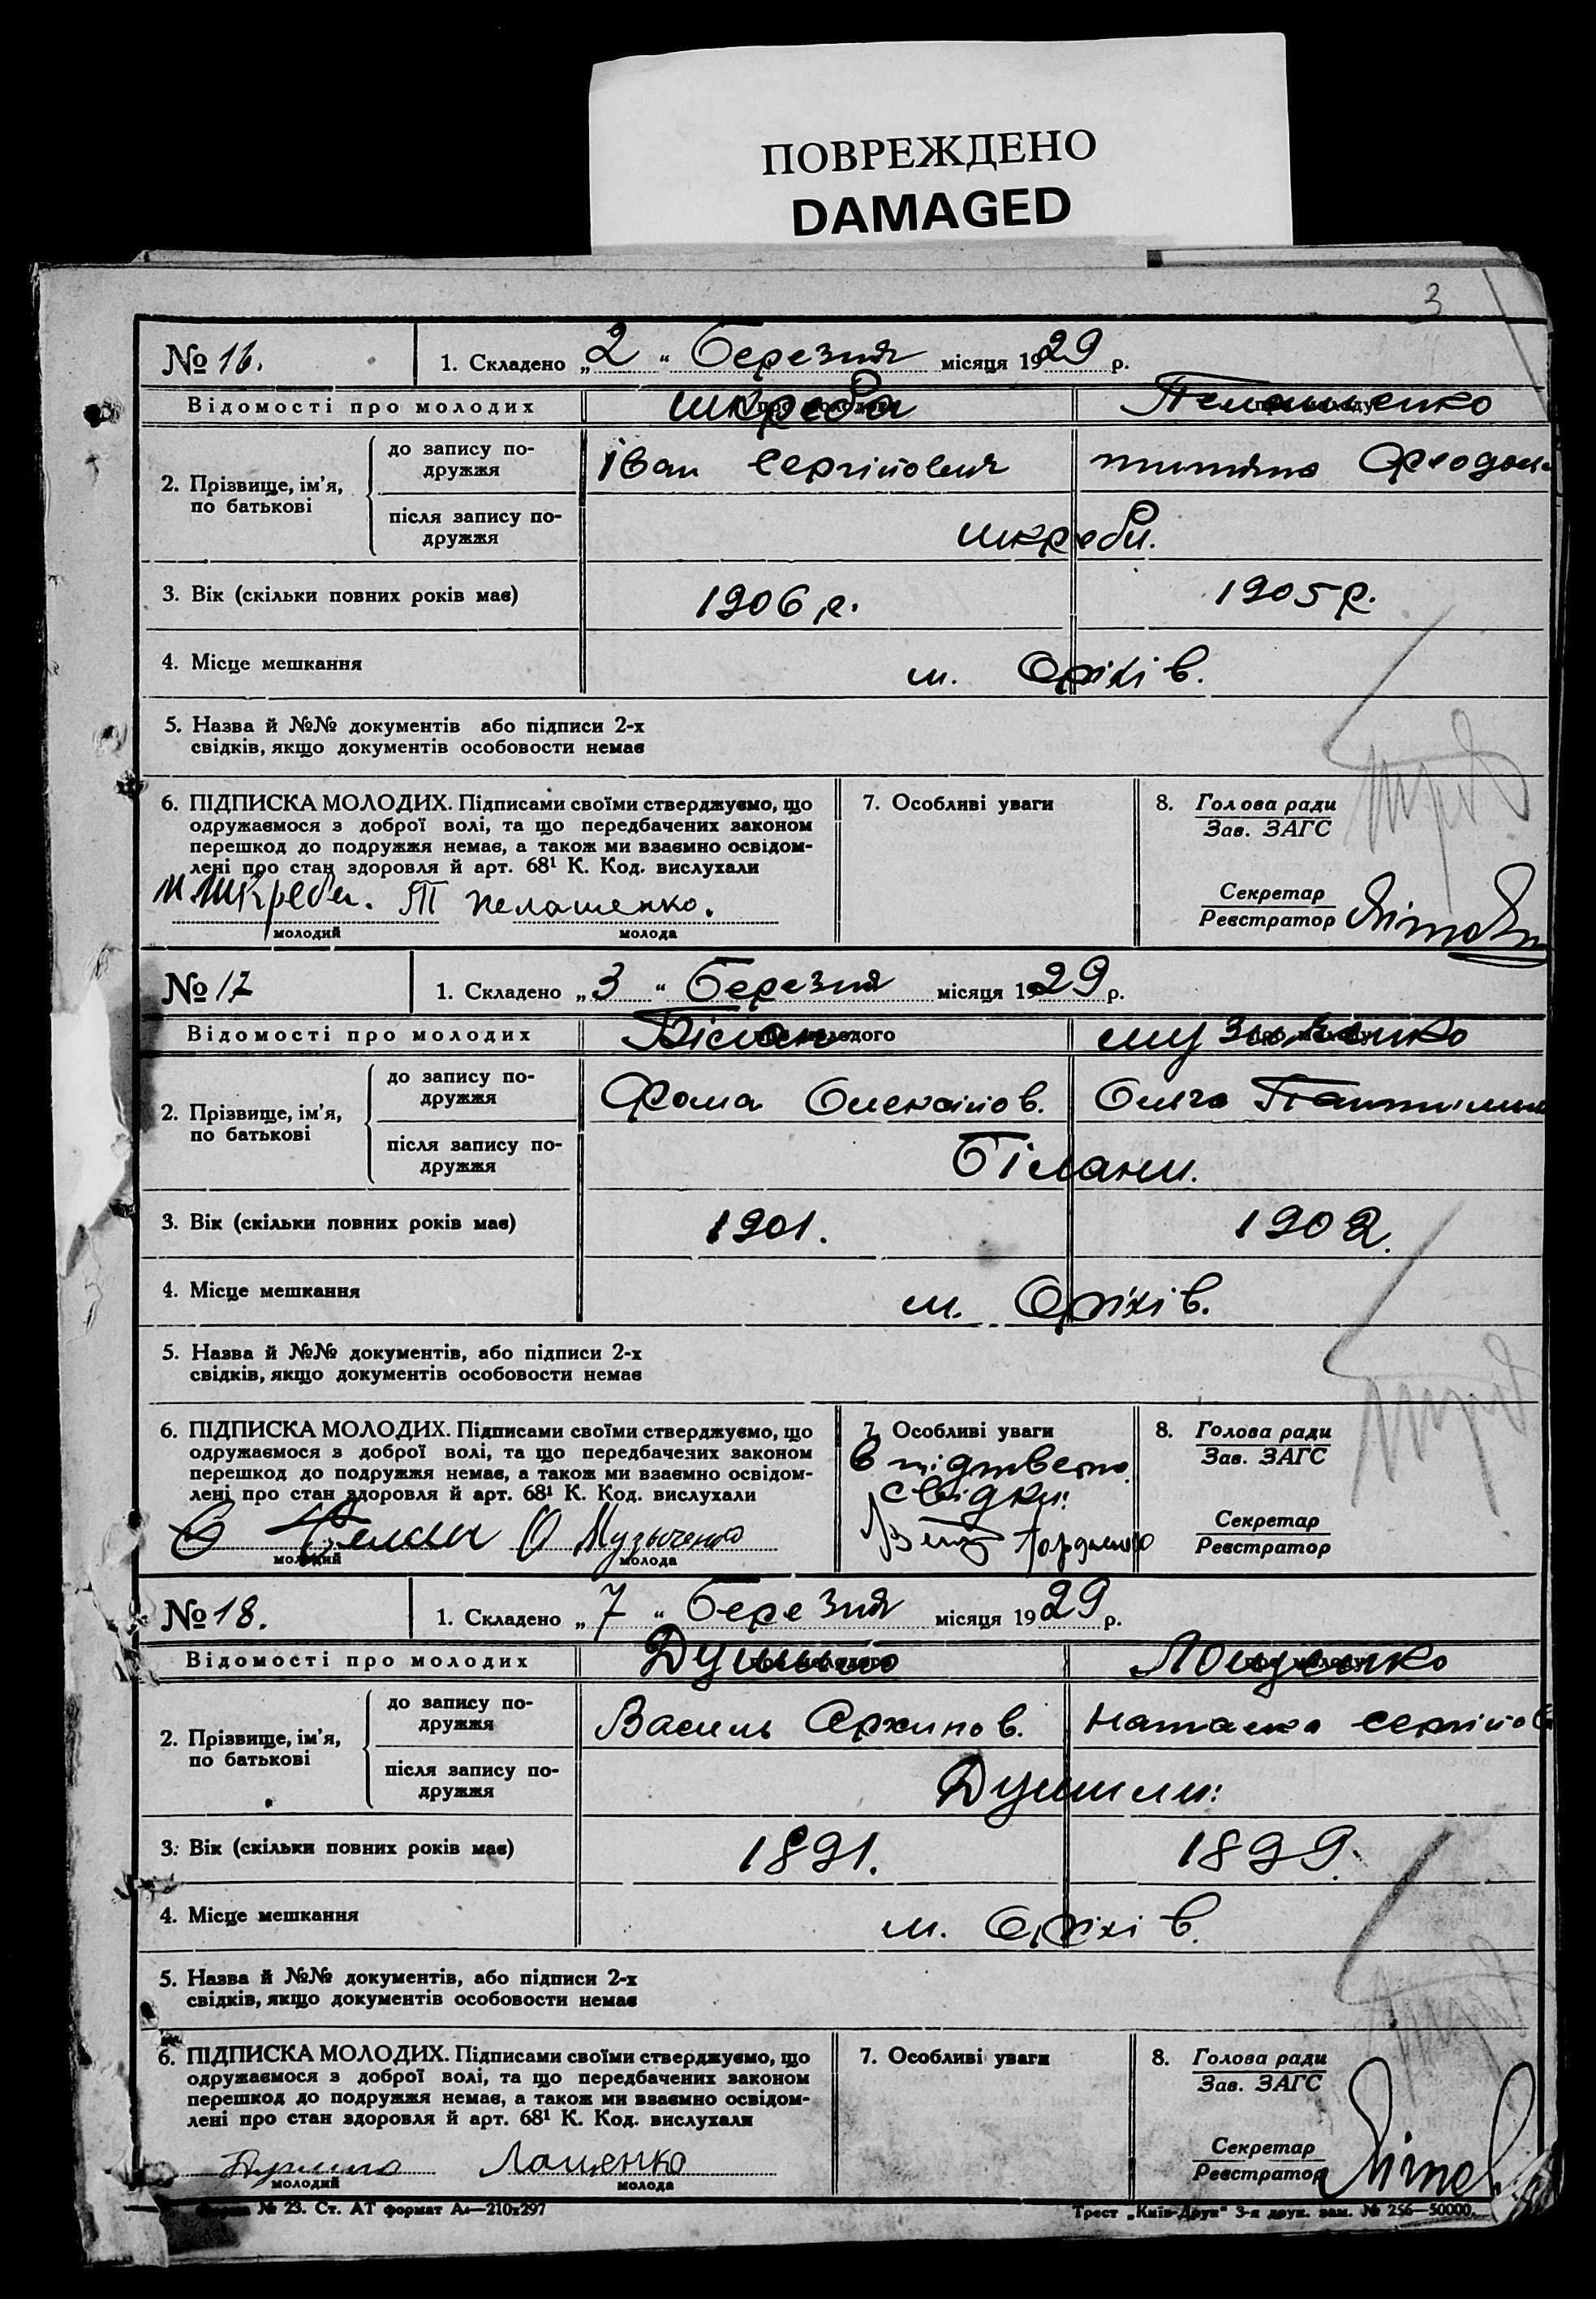 ПОВРЕЖДЕНО
DAMAGED
3
№ 16. 1. Складено „2“ Березня місяця 1929 р.
Відомості про молодих Шкреба Пелашенко
2. Прізвище, ім’я, по батькові
до запису подружжя Іван Сергійович
після запису подружжя Шкреби.
3. Вік (скільки повних років має) 1906 р. 1905 р.
4. Місце мешкання м. Оріхів.
5. Назва й №№ документів або підписи 2-х
свідків, якщо документів особовости немає
6. ПІДПИСКА МОЛОДИХ. Підписами своїми стверджуємо, що
одружаємося з доброї волі, та що передбачених законом
перешкод до подружжя немає, а також ми взаємно освідом-
лені про стан здоровля й арт. 68¹ К. Код. вислухали
Шкреба. Т Пелашенко.
молодий молода
7. Особливі уваги
8. Голова ради
Зав. ЗАГС
Секретар
Реєстратор
№ 17 1. Складено „3“ Березня місяця 1929 р.
Відомості про молодих Білан Музыченко
2. Прізвище, ім’я, по батькові
до запису подружжя Фома Олексійов. Ольга
після запису подружжя Білани.
3. Вік (скільки повних років має) 1901. 1902.
4. Місце мешкання м. Оріхів.
5. Назва й №№ документів, або підписи 2-х
свідків, якщо документів особовости немає
6. ПІДПИСКА МОЛОДИХ. Підписами своїми стверджуємо, що
одружаємося з доброї волі, та що передбачених законом
перешкод до подружжя немає, а також ми взаємно освідом-
лені про стан здоровля й арт. 68¹ К. Код. вислухали
О Музыченко
молодий молода
7. Особливі уваги
свідки:
8. Голова ради
Зав. ЗАГС
Секретар
Реєстратор
№ 18. 1. Складено „7“ Березня місяця 1929 р.
Відомості про молодих Лощенко
2. Прізвище, ім’я, по батькові
до запису подружжя Василь Архипов. Наталка Сергійов
після запису подружжя
3. Вік (скільки повних років має) 1891. 1899.
4. Місце мешкання м. Оріхів.
5. Назва й №№ документів, або підписи 2-х
свідків, якщо документів особовости немає
6. ПІДПИСКА МОЛОДИХ. Підписами своїми стверджуємо, що
одружаємося з доброї волі, та що передбачених законом
перешкод до подружжя немає, а також ми взаємно освідом-
лені про стан здоровля й арт. 68¹ К. Код. вислухали
Лощенко
молодий молода
7. Особливі уваги
8. Голова ради
Зав. ЗАГС
Секретар
Реєстратор
№ 23. Ст. АТ формат А₄—210х297
Трест „Київ-Друк“ 3-я друк. зам. № 256—50000.